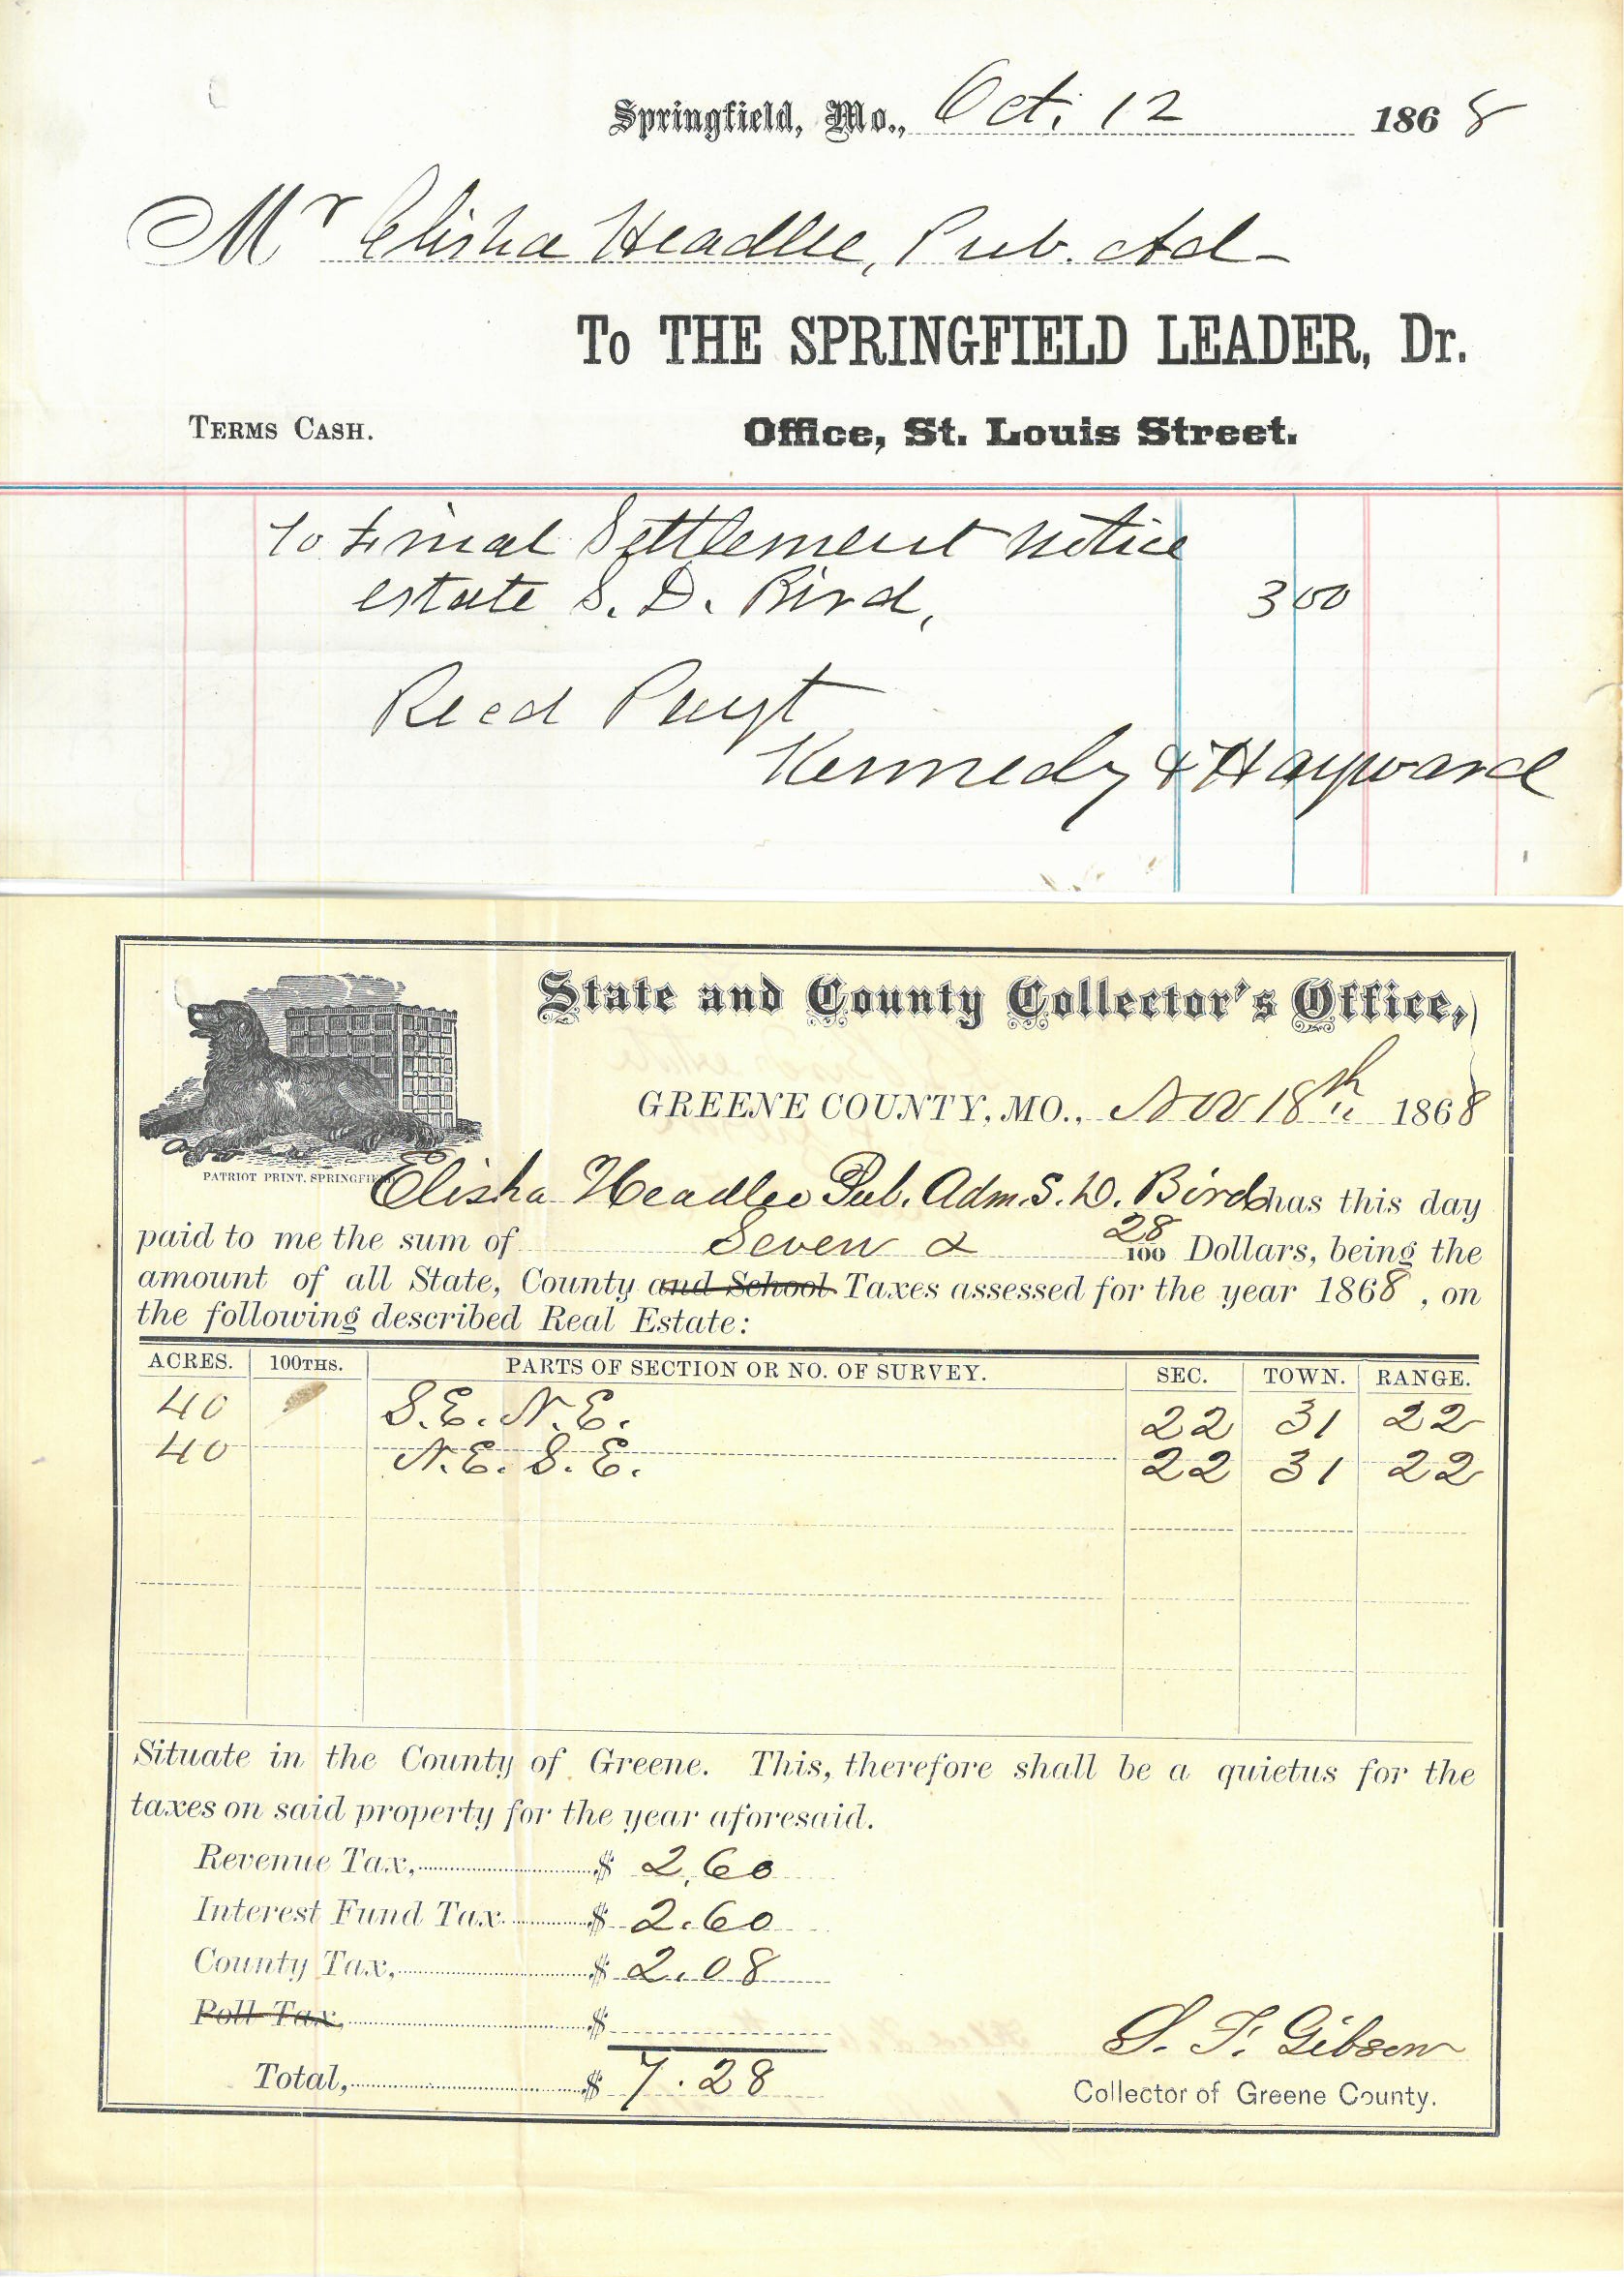 Springfield, Mo., Oct. 12 1868
Mr Elisha Headlee, Pub. Ad-
To THE SPRINGFIELD LEADER, Dr.
TERMS CASH. Office, St. Louis Street.
To Final Settlement Notice
estate S. D. Bird, 3 00
Recd Payt
Kennedy & Hayward
State and County Collector's Office,
GREENE COUNTY, MO., Nov 18th 1868
PATRIOT PRINT, SPRINGFIE
Elisha Headlee Pub. Adm. S. D. Bird has this day
paid to me the sum of Seven & 28/100 Dollars, being the
amount of all State, County and School Taxes assessed for the year 1868, on
the following described Real Estate:
ACRES. 100THS. PARTS OF SECTION OR NO. OF SURVEY. SEC. TOWN. RANGE.
40 S.E. N.E. 22 31 22
40 N.E. S.E. 22 31 22
Situate in the County of Greene. This, therefore shall be a quietus for the
taxes on said property for the year aforesaid.
Revenue Tax, $ 2,60
Interest Fund Tax $ 2.60
County Tax, $ 2.08
Poll Tax, $
Total, $ 7.28
S. F. Gibson
Collector of Greene County.